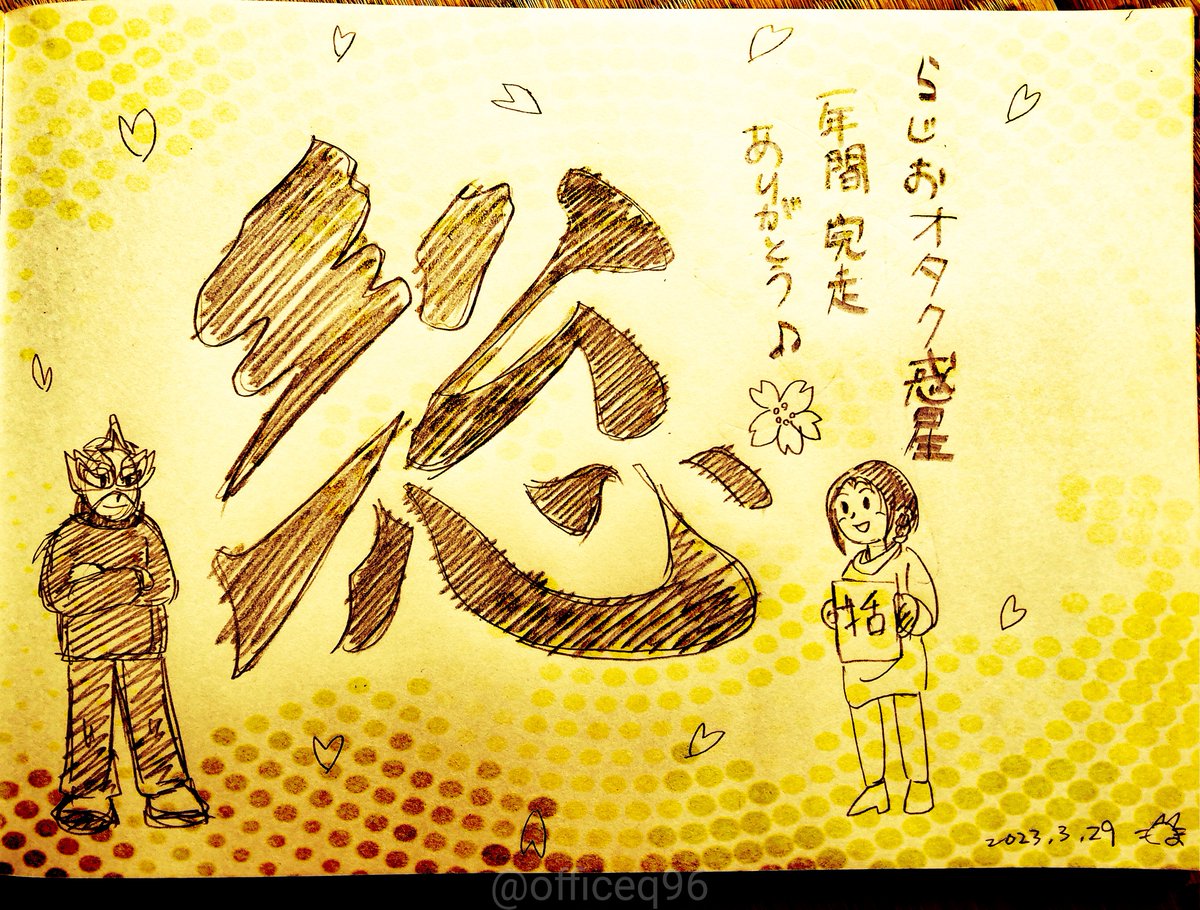 らじおオタク惑星
一年間 完走
ありがとう♪
総
括
2023.3.29
@officeq96